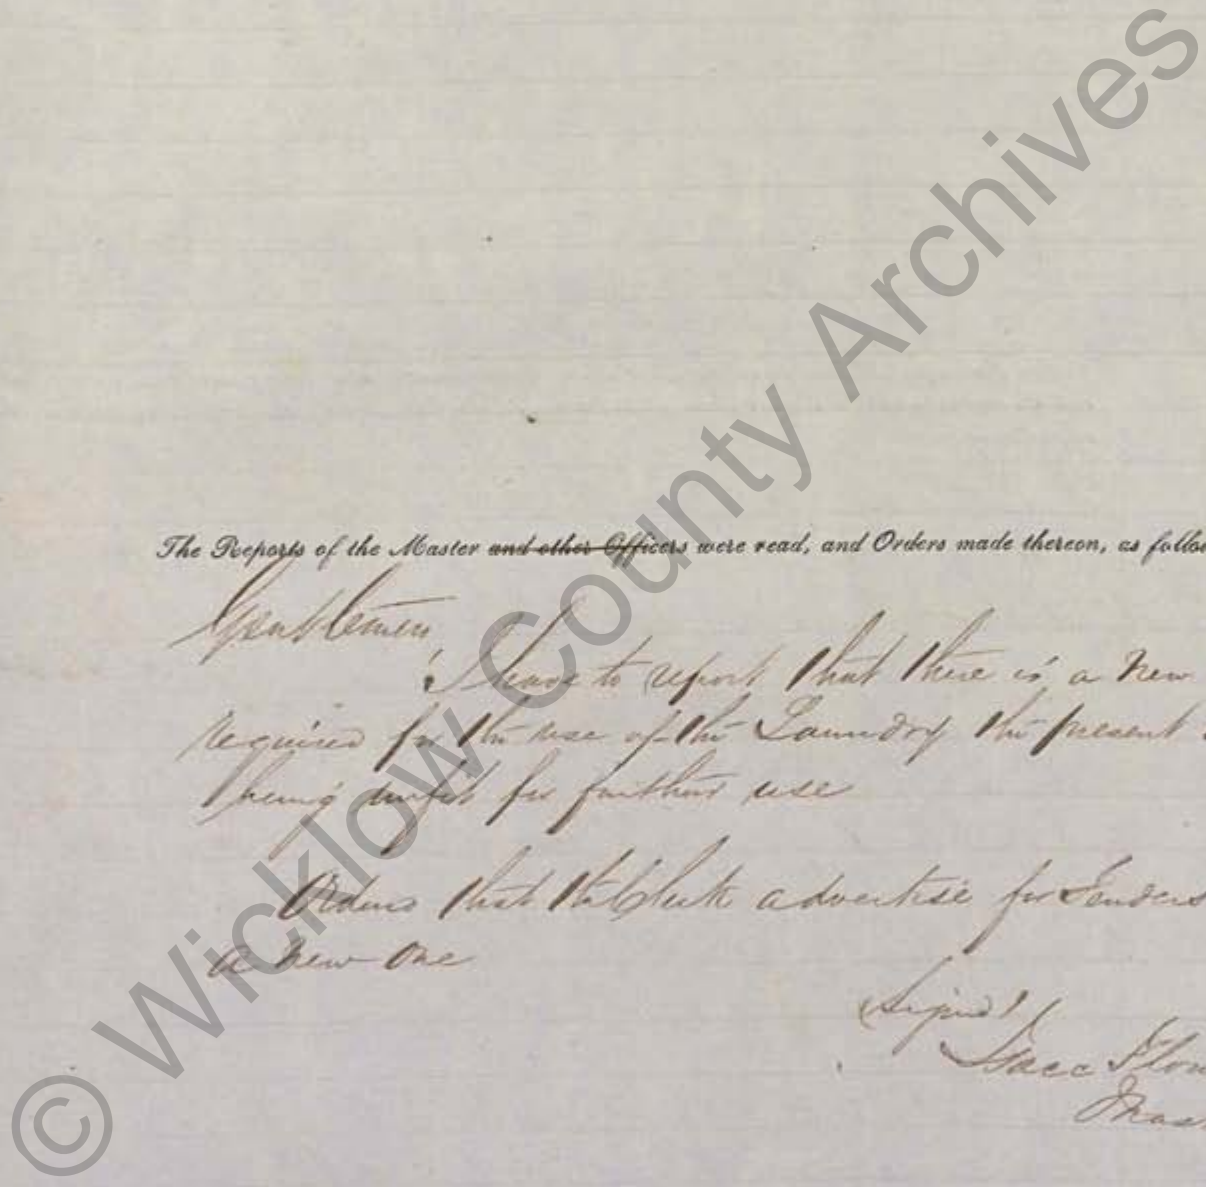 The Reports of the Master and other Officers were read, and Orders made thereon, as follo
Gentlemen,
I have to report that there is a new
required for the use of the Laundry the present
being unfit for further use
Orders that the Clerk advertise for Tenders
a new one
Signed
Isaac
Mas
© Wicklow County Archives